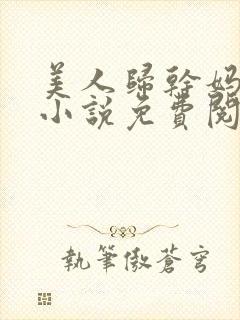 美人歸幹妈
小説免費閱
執筆傲蒼穹